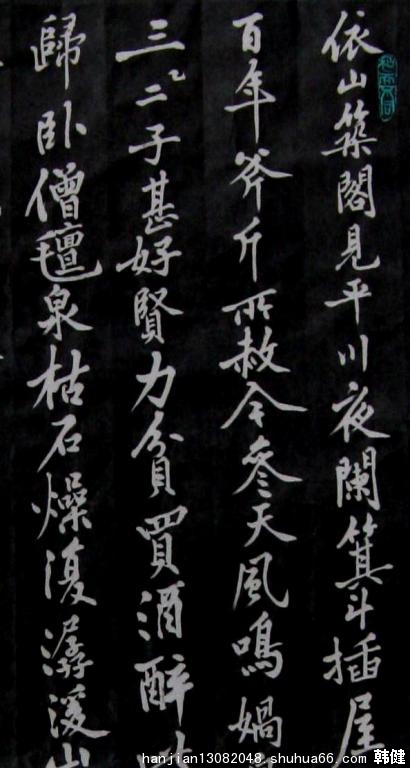 依山築閣見平川夜闌箕斗插屋
百年斧斤所赦今參天風鳴媧
三二子甚好賢力貧買酒醉
歸臥僧氈泉枯石燥復潺湲山
hanjian13082048 shuhua66.com 韩健